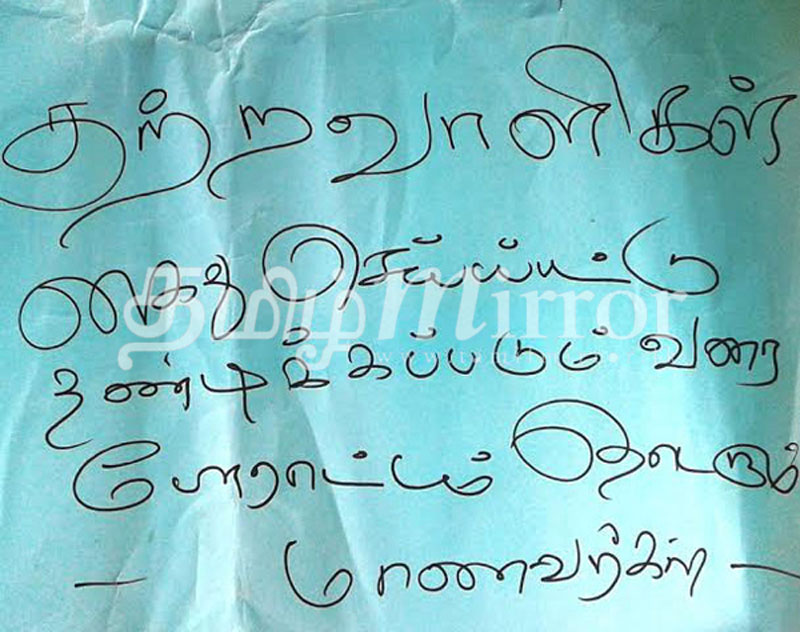 குற்றவாளிகள்
கைது செய்யப்பட்டு
தண்டிக்கப்படும் வரை
போராட்டம் தொடரும்
- மாணவர்கள் -
தமிழ்mirror